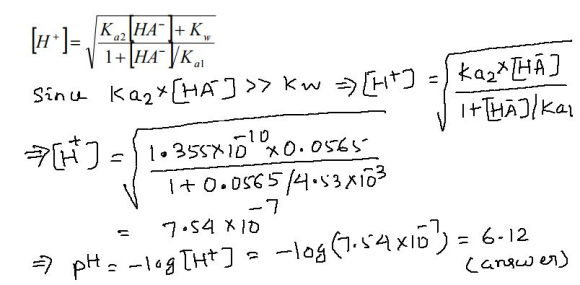 [H⁺]=√((K_{a2}[HA⁻]+K_w)/(1+[HA⁻]/K_{a1}))
Since Ka₂×[HA⁻] >> Kw ⇒ [H⁺] = √((Ka₂×[HĀ])/(1+[HĀ]/Ka₁))
⇒[H⁺] = √((1.355×10⁻¹⁰×0.0565)/(1+0.0565/4.53×10⁻³))
= 7.54×10⁻⁷
⇒ pH = -log[H⁺] = -log(7.54×10⁻⁷) = 6.12
(answer)